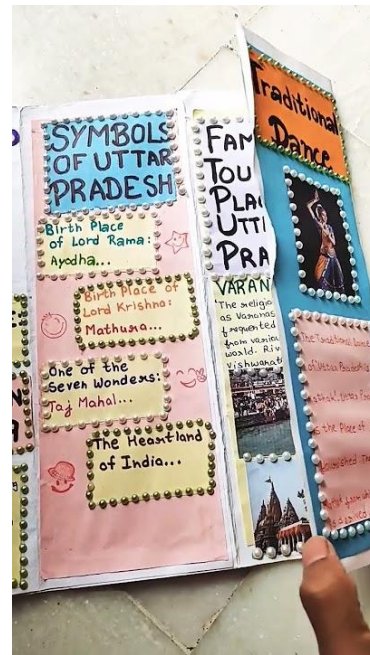 SYMBOLS
OF UTTAR
PRADESH
Birth Place
of Lord Rama:
Ayodha...
Birth Place of
Lord Krishna:
Mathura...
One of the
Seven Wonders:
Taj Mahal...
The Heartland
of India...
FAM
TOU
PLA
UTT
PRA
VARAN
The religio
as Varanas
frequented
from variou
world. Riv
vishwanat
Traditional
Dance
The Traditional Dance
of Uttar Pradesh is
is the Place of